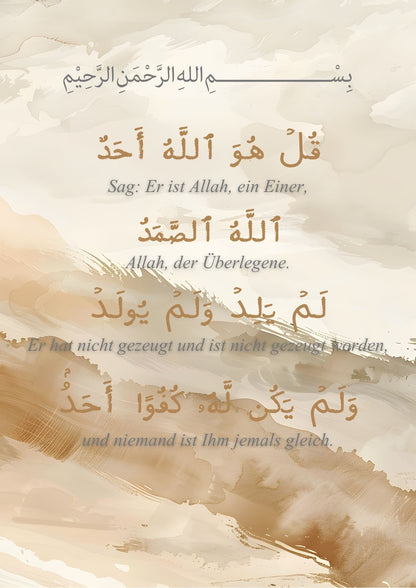 بِسْمِ اللهِ الرَّحْمَنِ الرَّحِيْمِ
قُلْ هُوَ ٱللَّهُ أَحَدٌ
Sag: Er ist Allah, ein Einer,
ٱللَّهُ ٱلصَّمَدُ
Allah, der Überlegene.
لَمْ يَلِدْ وَلَمْ يُولَدْ
Er hat nicht gezeugt und ist nicht gezeugt worden,
وَلَمْ يَكُن لَّهُۥ كُفُوًا أَحَدٌۢ
und niemand ist Ihm jemals gleich.